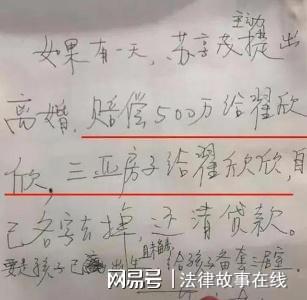 主动
如果有一天,苏享茂提出
离婚,赔偿500万给翟欣
欣,三亚房子给翟欣欣,自
己名字去掉,还清贷款。
要是孩子已出生
且
给孩子备套三居室
网易号 | 法律故事在线